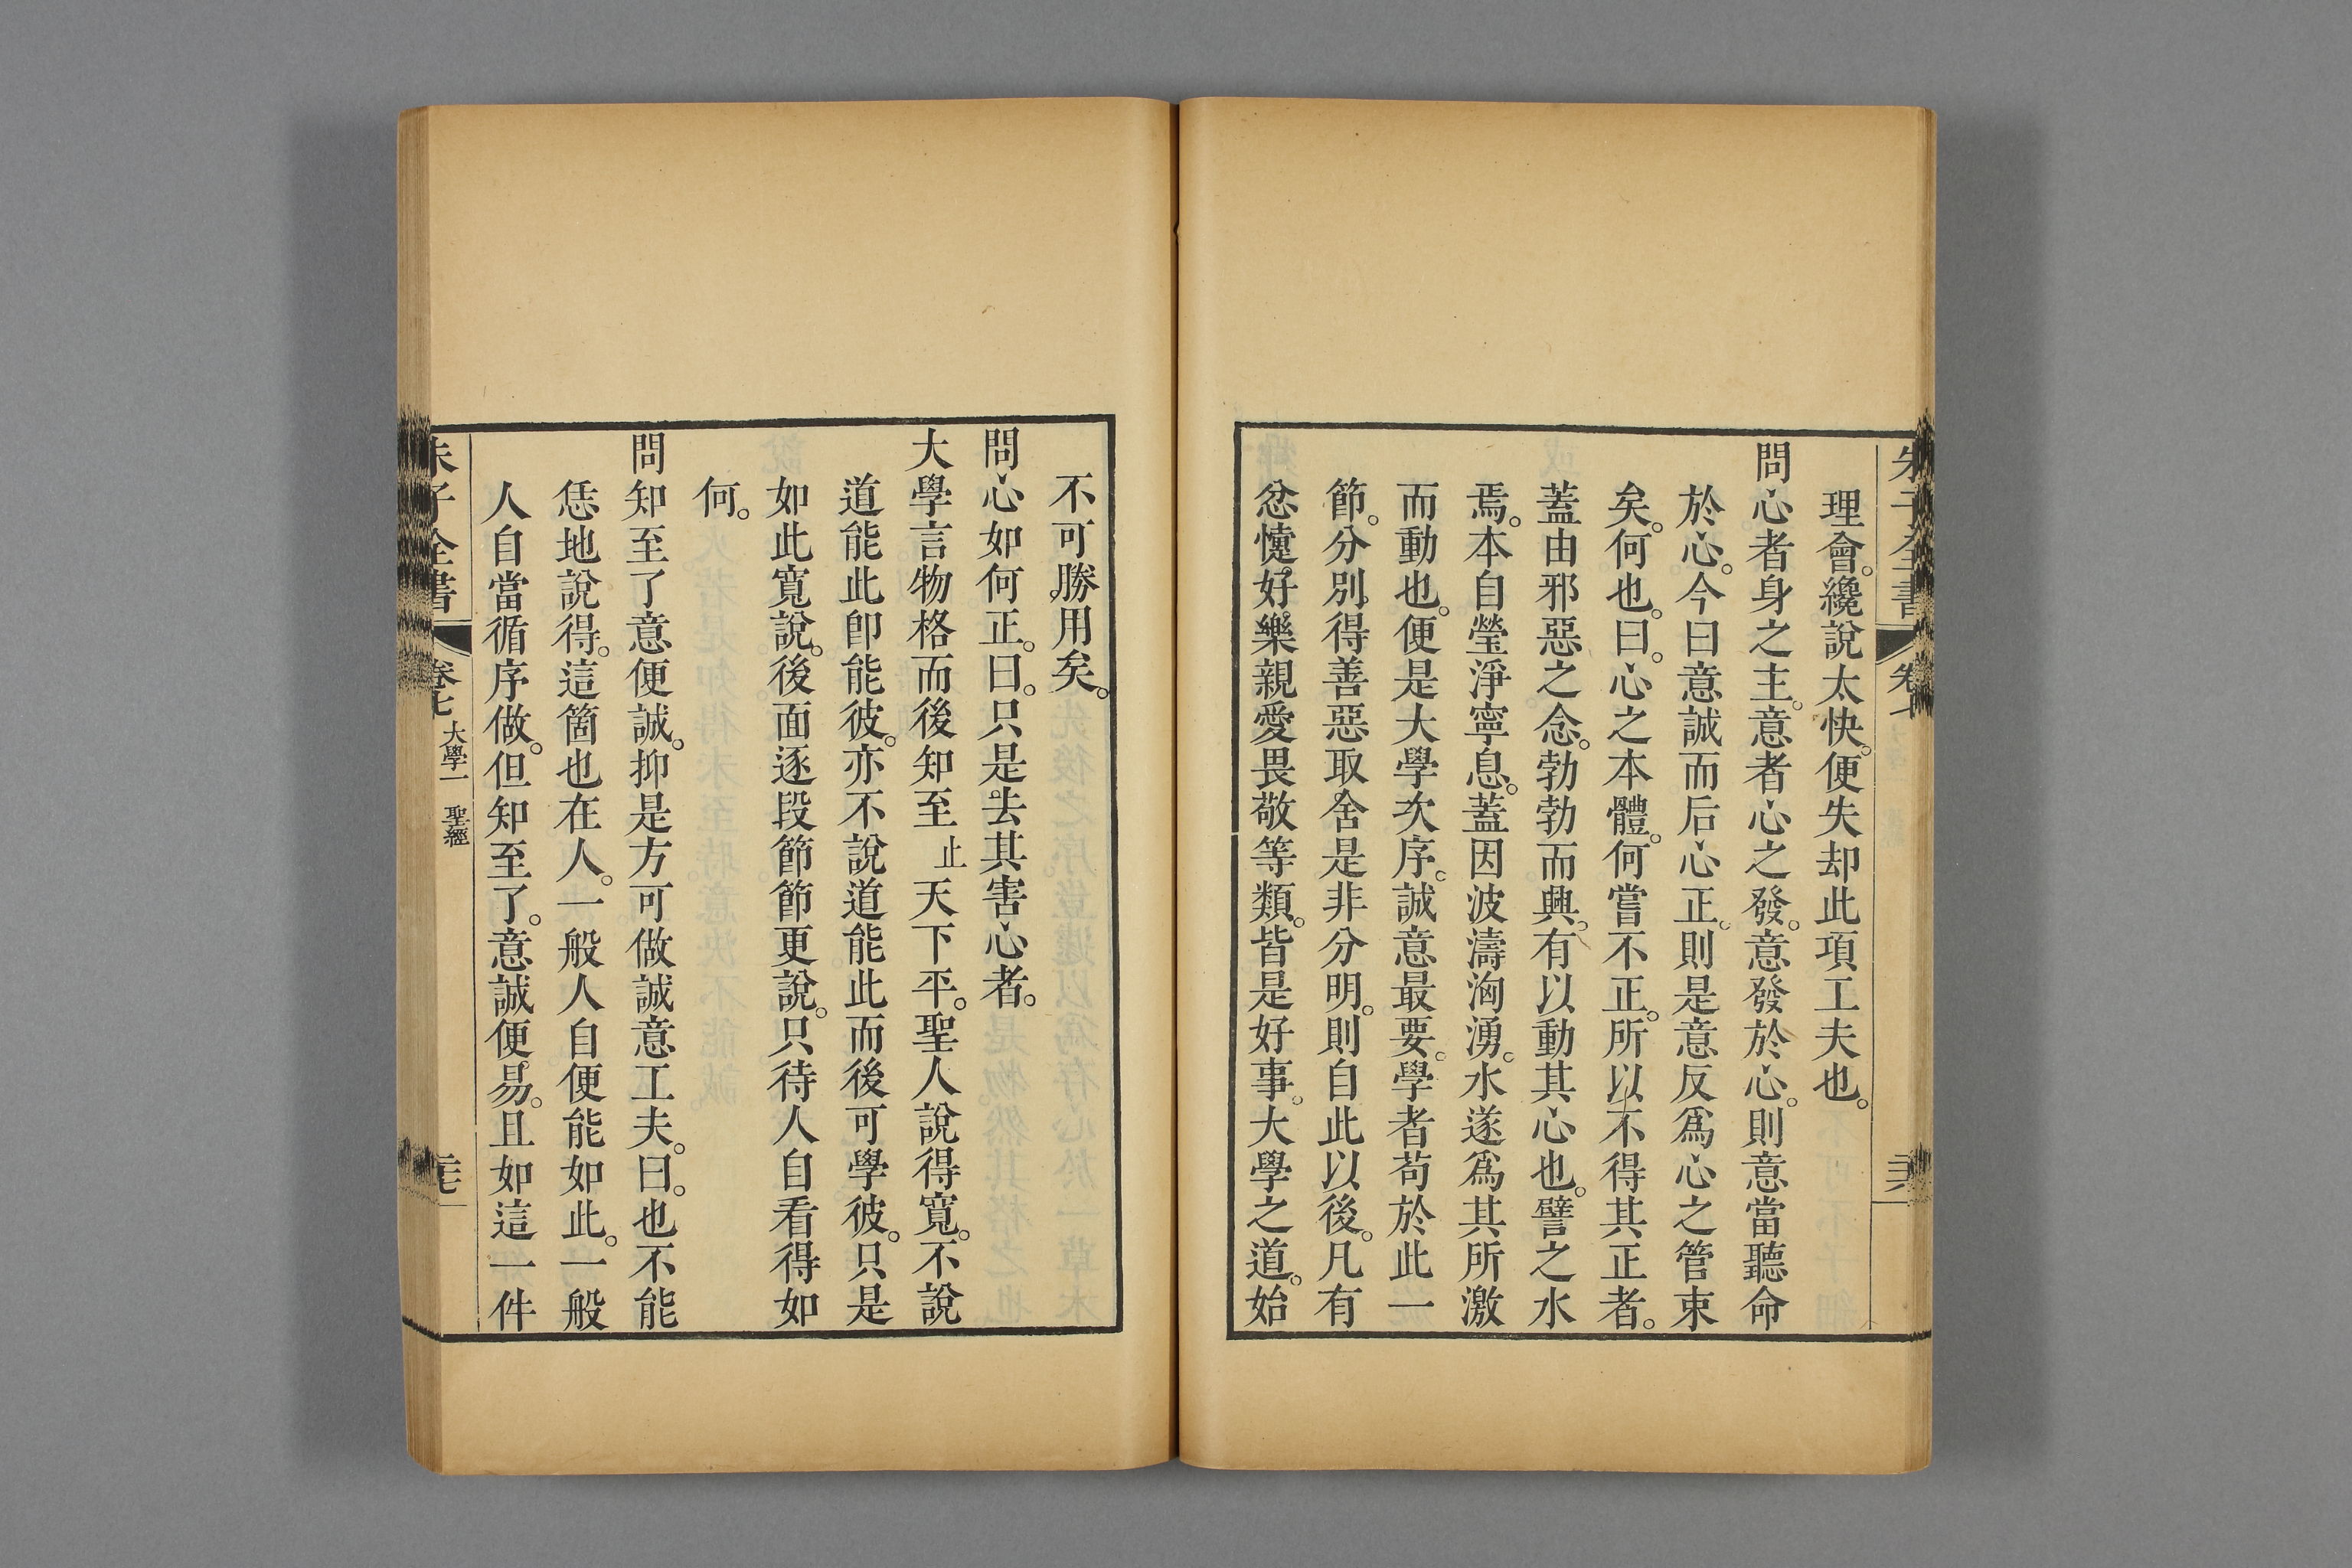 朱子全書 卷七 二十六
理會。纔說太快。便失却此項工夫也。
問心者身之主。意者心之發。意發於心。則意當聽命
於心。今曰意誠而后心正。則是意反爲心之管束
矣。何也。曰。心之本體。何嘗不正。所以不得其正者。
蓋由邪惡之念。勃勃而興。有以動其心也。譬之水
焉。本自瑩淨寧息。蓋因波濤洶湧。水遂爲其所激
而動也。便是大學次序。誠意最要。學者苟於此一
節。分別得善惡取舍是非分明。則自此以後。凡有
忿懥好樂親愛畏敬等類。皆是好事。大學之道。始
不可勝用矣。
問心如何正。曰。只是去其害心者。
大學言物格而後知至止天下平。聖人說得寬。不說
道能此卽能彼。亦不說道能此而後可學彼。只是
如此寬說。後面逐段節節更說。只待人自看得如
何。
問知至了意便誠。抑是方可做誠意工夫。曰。也不能
恁地說得。這箇也在人。一般人自便能如此。一般
人自當循序做。但知至了。意誠便易。且如這一件
朱子全書 卷七 大學一 聖經 二十七